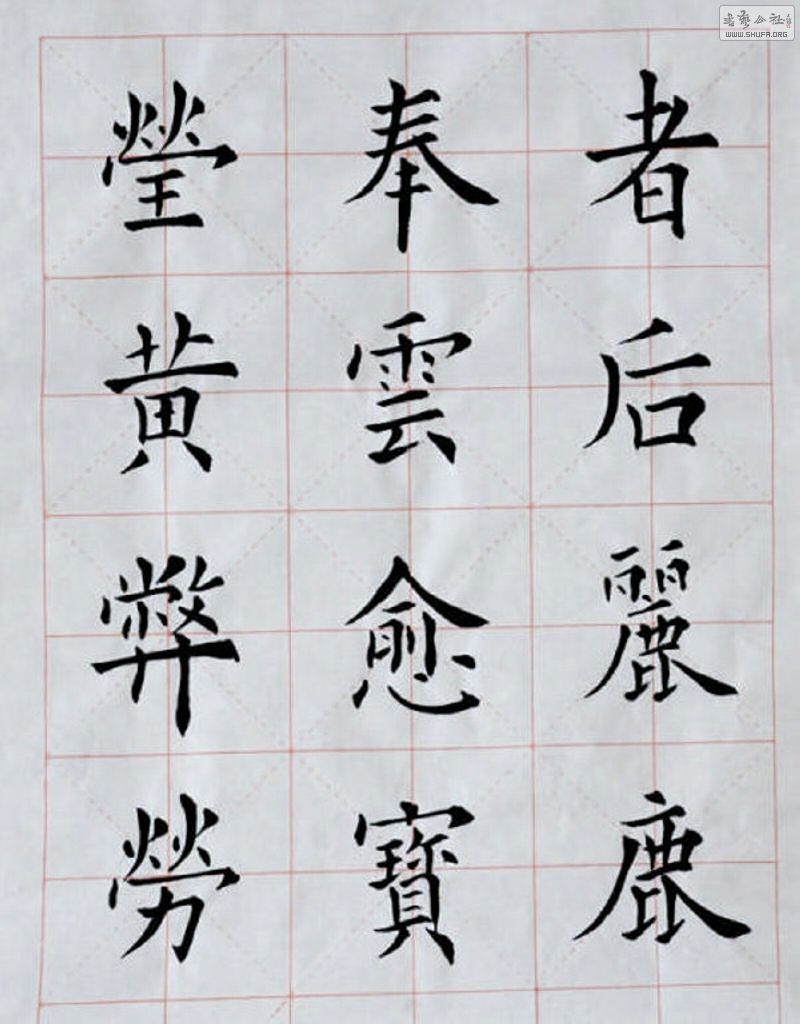 者后麗鹿
奉雲愈寶
瑩黄弊勞
书艺公社
WWW.SHUFA.ORG